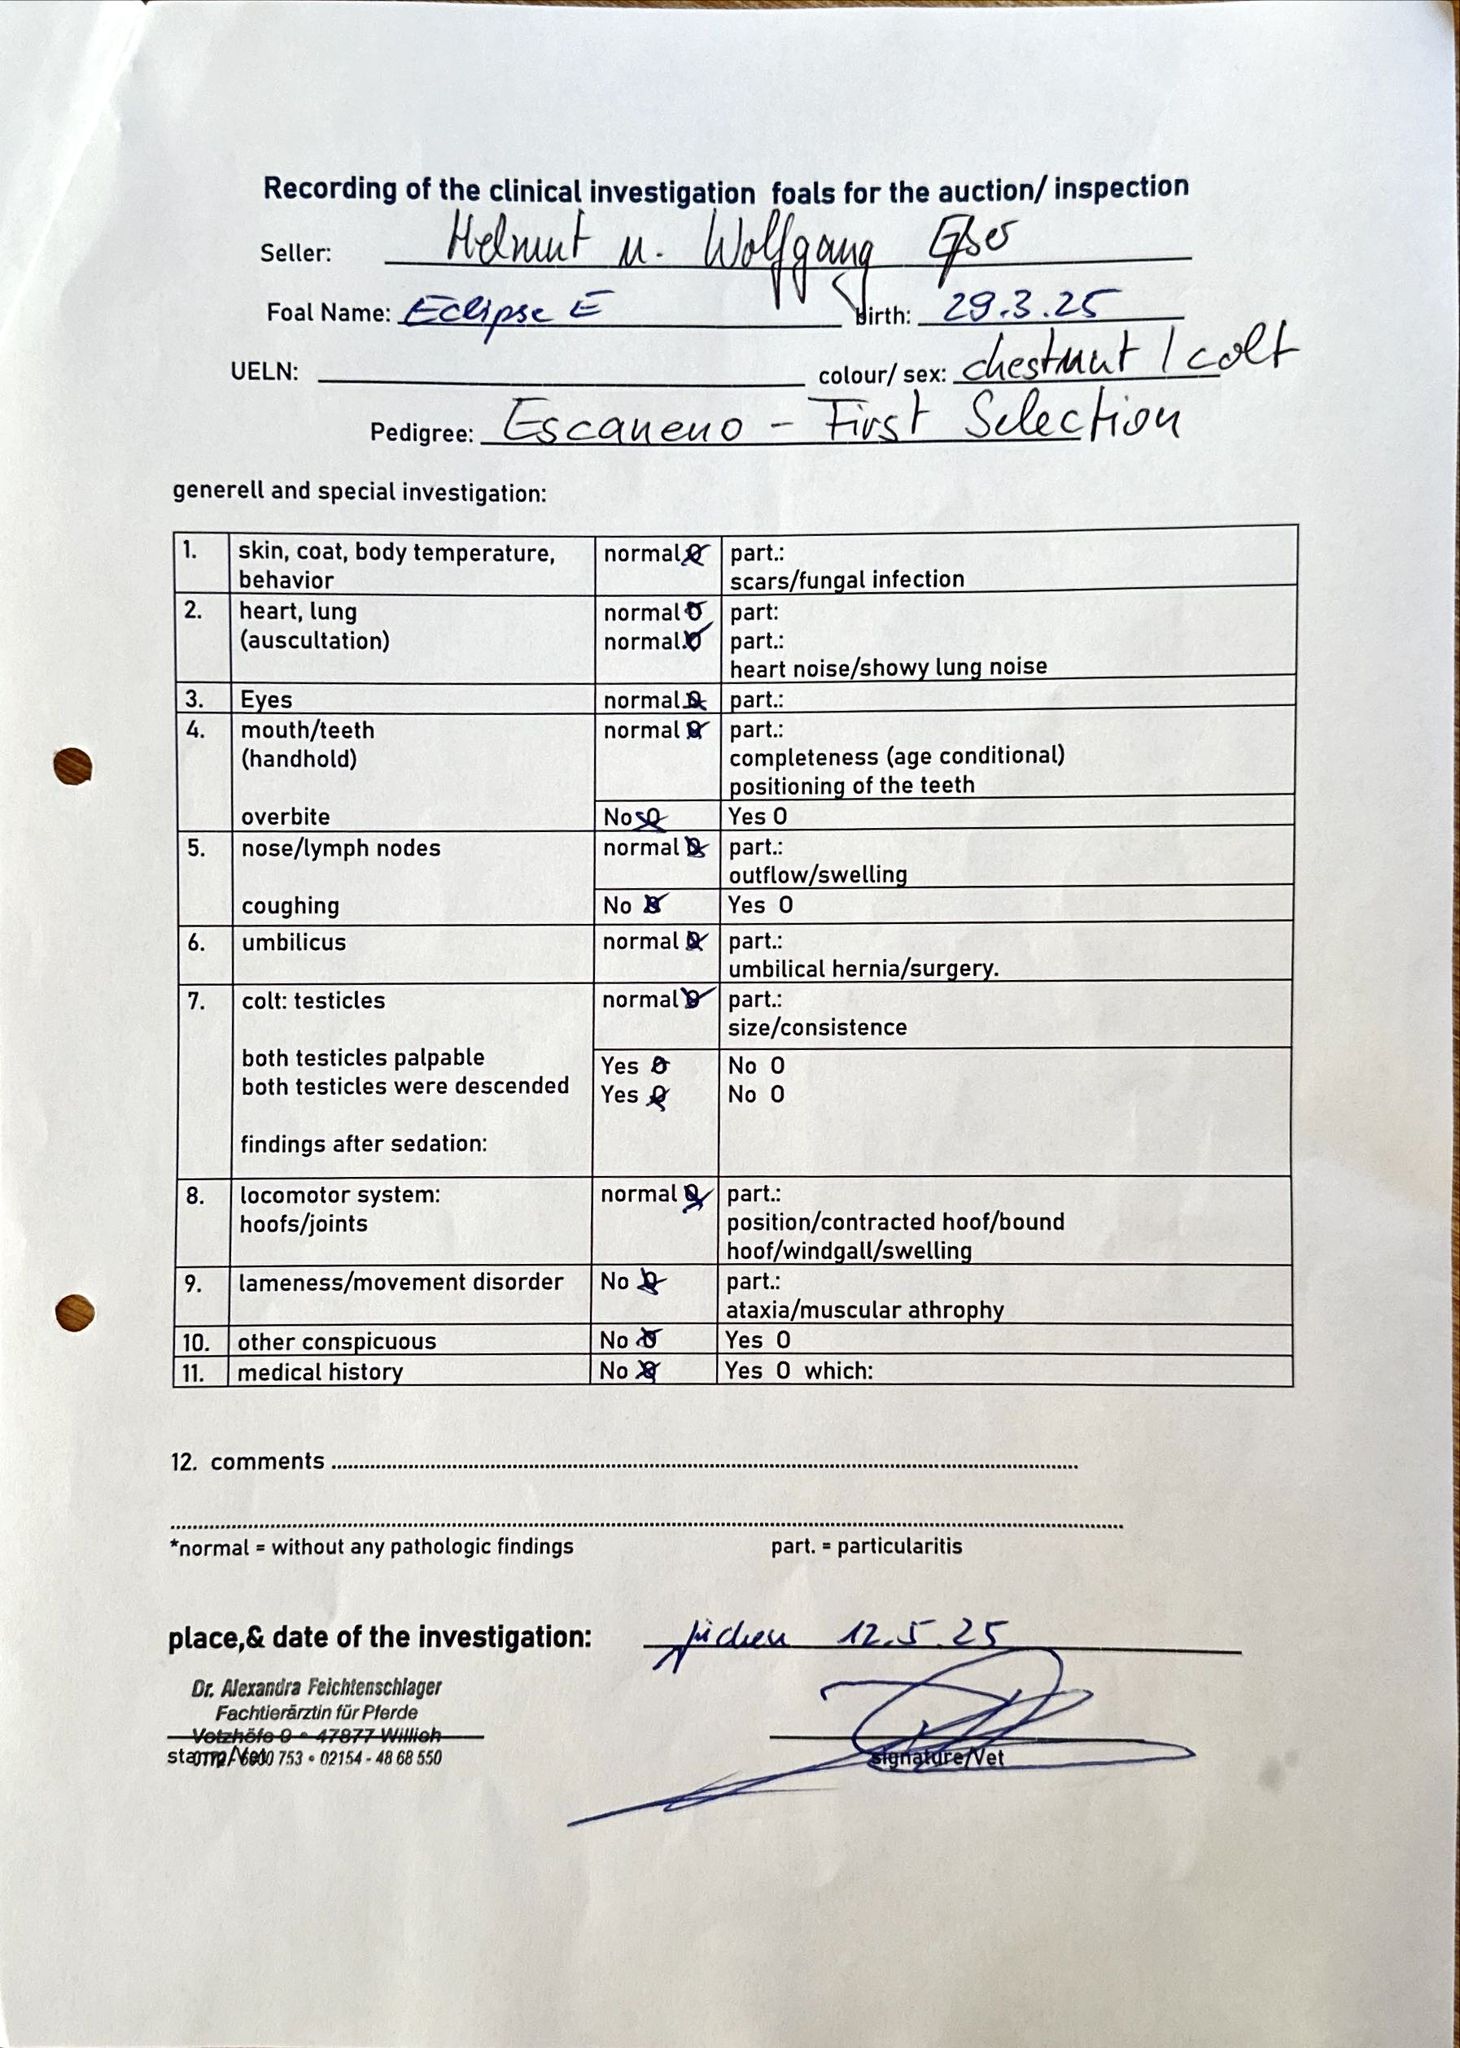 Recording of the clinical investigation foals for the auction/ inspection
Seller: Helmut u. Wolfgang Esser
Foal Name: Eclipse E birth: 29.3.25
UELN: colour/ sex: chestnut / colt
Pedigree: Escaneno - First Selection
generell and special investigation:
1. skin, coat, body temperature, normal O part.:
behavior scars/fungal infection
2. heart, lung normal O part:
(auscultation) normal.O part.:
heart noise/showy lung noise
3. Eyes normal O part.:
4. mouth/teeth normal O part.:
(handhold) completeness (age conditional)
positioning of the teeth
overbite No O Yes O
5. nose/lymph nodes normal O part.:
outflow/swelling
coughing No O Yes O
6. umbilicus normal O part.:
umbilical hernia/surgery.
7. colt: testicles normal O part.:
size/consistence
both testicles palpable Yes O No O
both testicles were descended Yes O No O
findings after sedation:
8. locomotor system: normal O part.:
hoofs/joints position/contracted hoof/bound
hoof/windgall/swelling
9. lameness/movement disorder No O part.:
ataxia/muscular athrophy
10. other conspicuous No O Yes O
11. medical history No O Yes O which:
12. comments
*normal = without any pathologic findings part. = particularitis
place,& date of the investigation: Jüchen 12.5.25
Dr. Alexandra Feichtenschlager
Fachtierärztin für Pferde
Vetzhöfe 9 • 47877 Willich
stamp/Vet 753 • 02154 - 48 68 550 signature/Vet